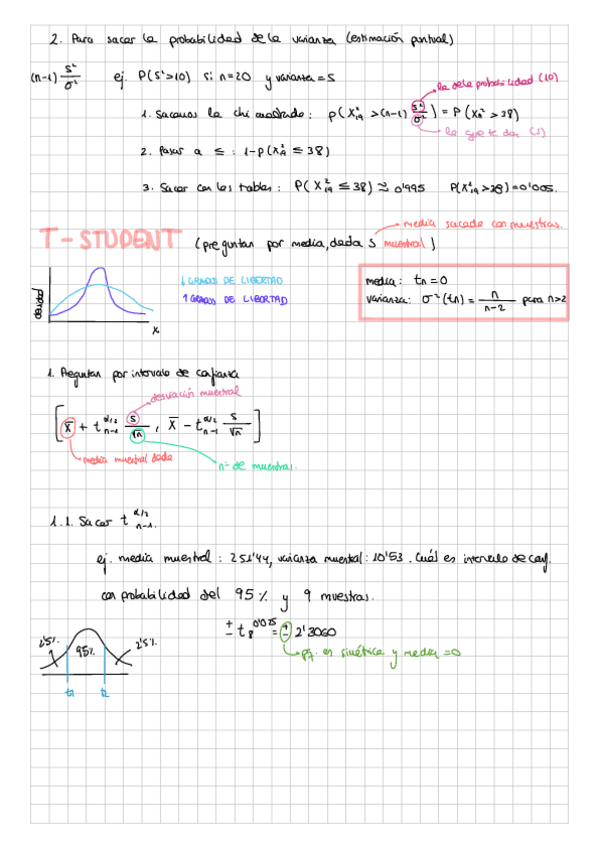 2. Para sacar la probabilidad de la varianza (estimación puntual)
(n-1) s²/σ² ej. P(s²>10) si n=20 y varianza=5
la de la probabilidad (10)
1. Sacamos la chi cuadrado: P(X²₁₉ > (n-1) s²/σ²) = P(X²₁₉ > 38)
la que te dan (5)
2. Pasar a ≤ : 1-P(X²₁₉ ≤ 38)
3. Sacar con las tablas: P(X²₁₉ ≤ 38) ≈ 0'995 P(X²₁₉ > 38) = 0'005.
media sacada con muestras.
T-STUDENT (preguntan por media, dada s muestral)
↓ GRADOS DE LIBERTAD
↑ GRADOS DE LIBERTAD
densidad
x
media: tn = 0
varianza: σ²(tn) = n/n-2 para n>2
1. Preguntan por intervalo de confianza
desviación muestral
[x̄ + t α/2 n-1 s/√n , x̄ - t α/2 n-1 s/√n]
media muestral dada
nº de muestras.
1.1. Sacar t α/2 n-1.
ej. media muestral: 251'44, varianza muestral: 10'53. Cuál es intervalo de conf.
con probabilidad del 95% y 9 muestras.
± t₈ 0'025 = ± 2'3060
pq. es simética y media = 0
2'5%. 95% 2'5%.
t1 t2